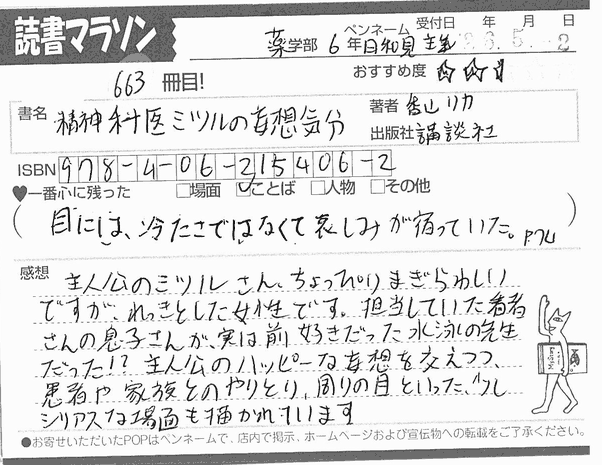 読書マラソン
ペンネーム 受付日 年 月 日
薬学部 6年 日和見主義 26.5.-2
663 冊目! おすすめ度 ☆☆
書名 精神科医ミツルの妄想気分
著者 香山リカ
出版社 講談社
ISBN 978-4-06-215406-2
♥一番心に残った □場面 ☑ことば □人物 □その他
(目には、冷たさではなくて哀しみが宿っていた。P.74)
感想 主人公のミツルさん、ちょっぴりまぎらわしい
ですが、れっきとした女性です。担当していた患者
さんの息子さんが、実は前好きだった水泳の先生
だった!? 主人公のハッピーな妄想を交えつつ、
患者や家族とのやりとり、周りの目といった、少し
シリアスな場面も描かれています
●お寄せいただいたPOPはペンネームで、店内で掲示、ホームページおよび宣伝物への転載をご了承ください。